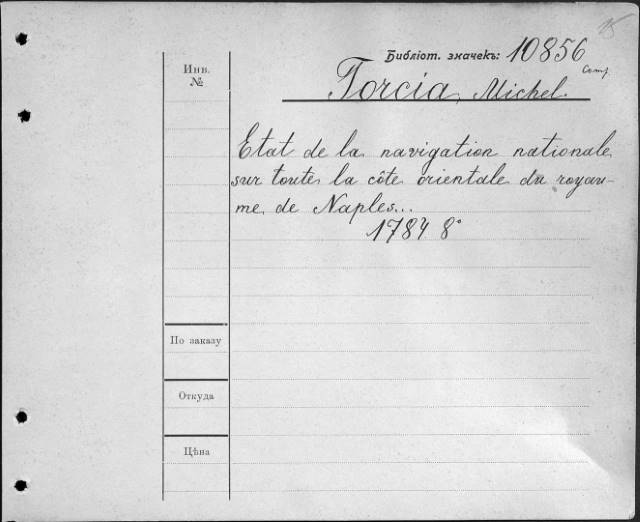 15
Библіот. значекъ: 10856
Comp.
Инв.
№
Torcia, Michel.
Etat de la navigation nationale
sur toute la côte orientale du royau-
me de Naples...
1784 8°
По заказу
Откуда
Цѣна